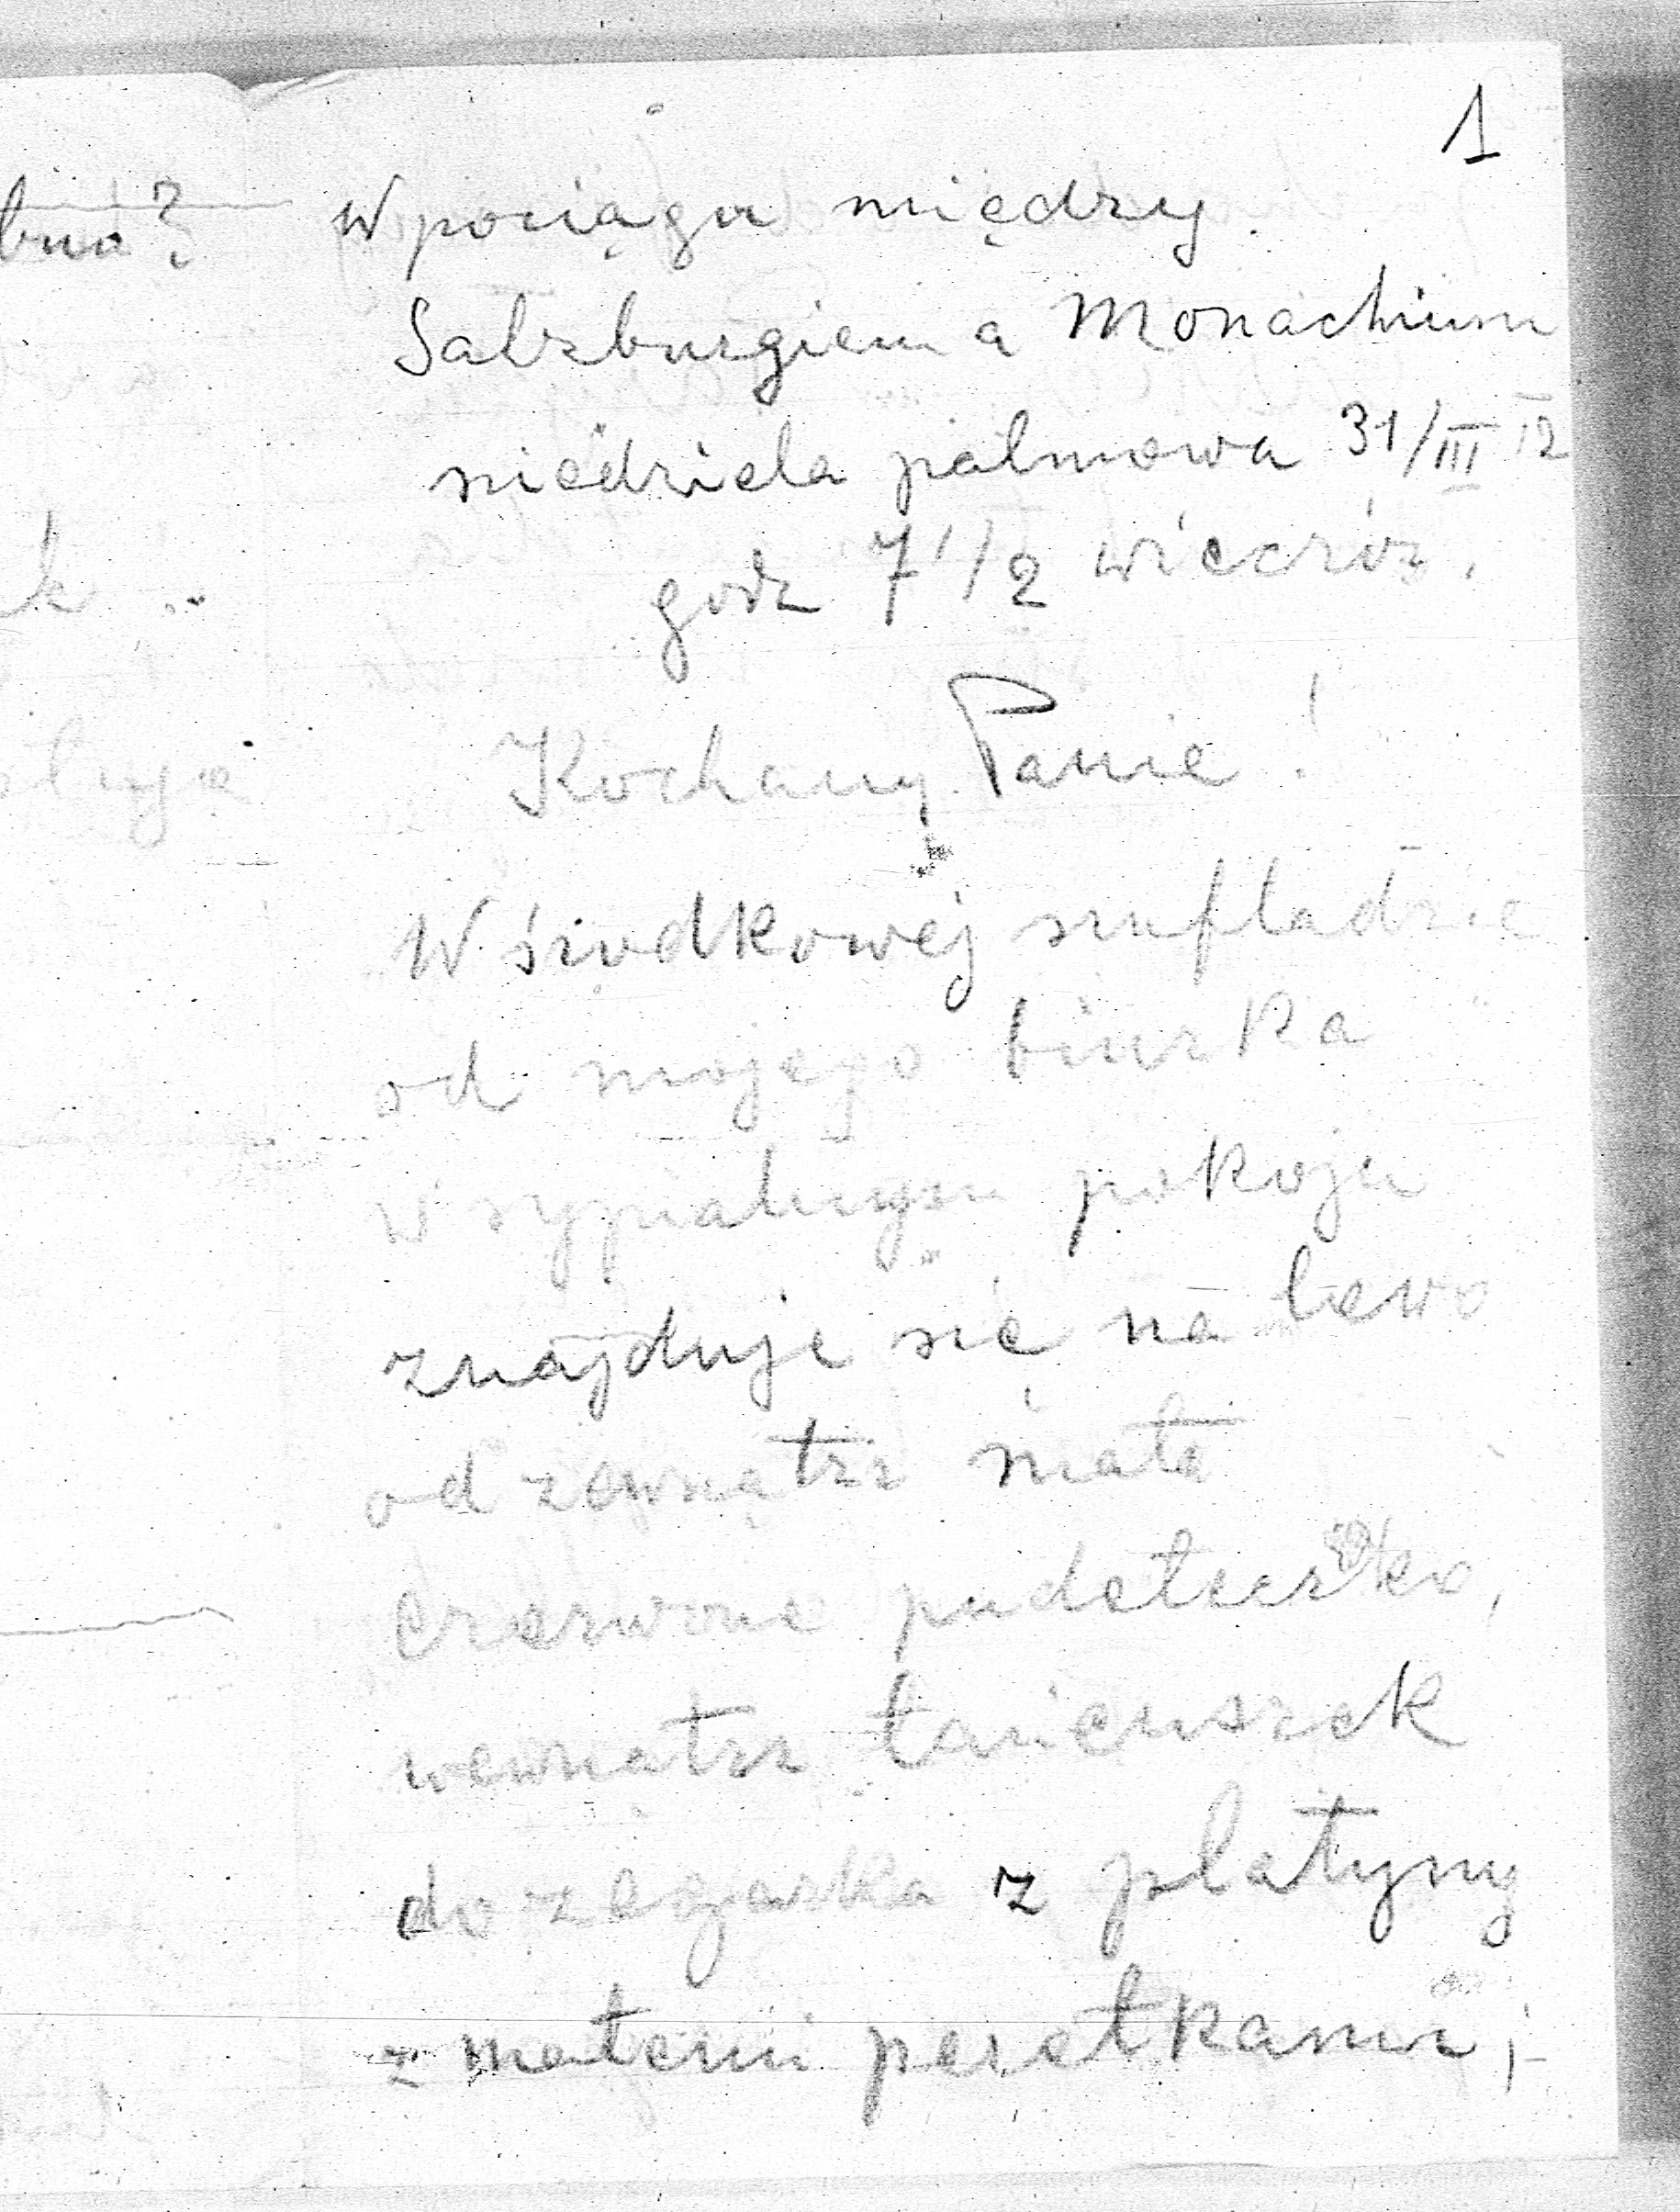 1
W pociągu między
Salzburgiem a Monachium
niedziela palmowa 31/III 12
godz 7 1/2 wieczór.
Kochany Panie!
W środkowej szufladzie
od mojego biurka
w sypialnym pokoju
znajduje się na lewo
od zewnątrz małe
czerwone pudełeczko,
wewnątrz łańcuszek
do zegarka z platyny
z małemi perełkami;